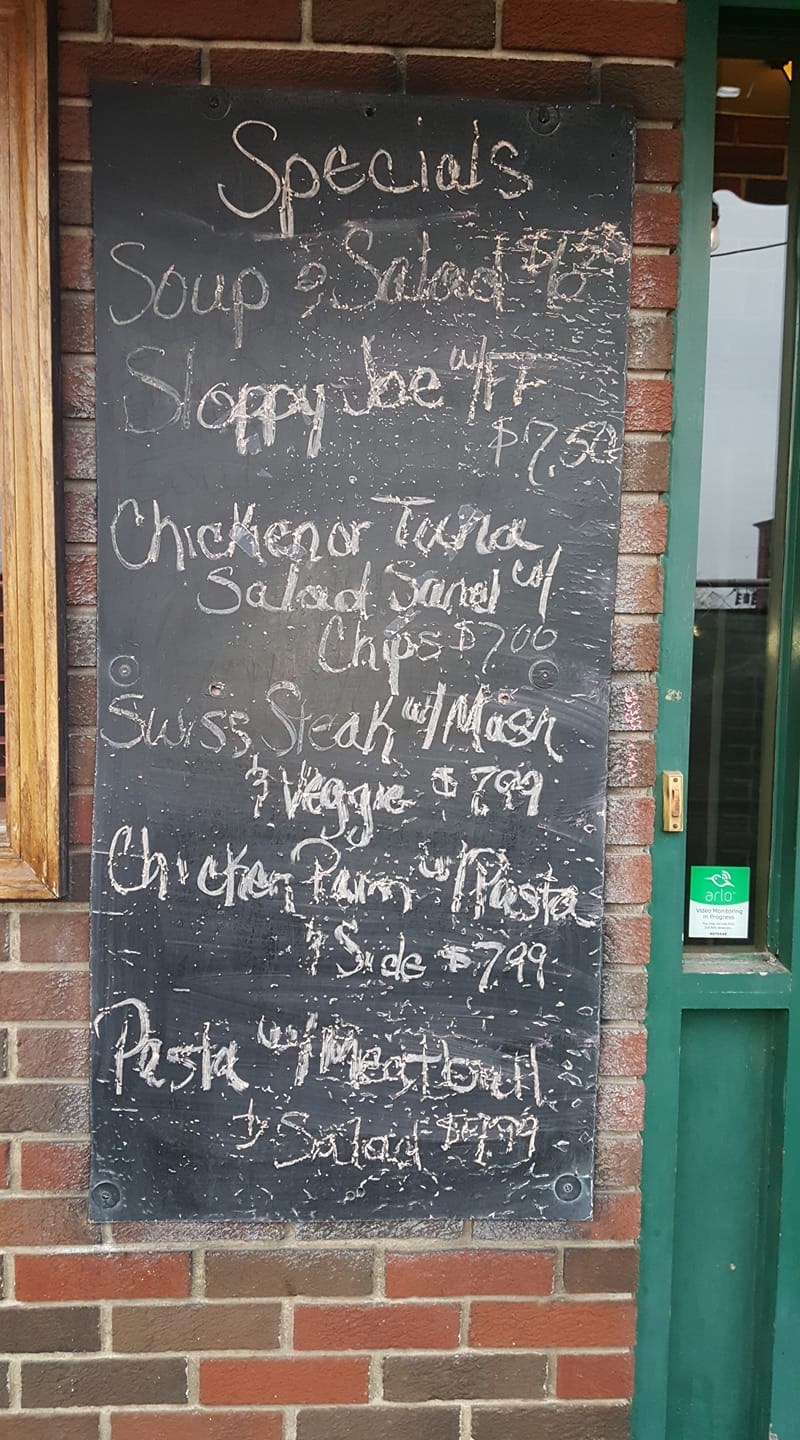 Specials
Soup & Salad
Sloppy Joe w/FF
$7.50
Chicken or Tuna
Salad Sand w/
Chips $7.00
Swiss Steak w/ Mash
& Veggie $7.99
Chicken Parm w/ Pasta
& Side $7.99
Pasta w/ Meatball
& Salad
arlo
Video Monitoring
in Progress